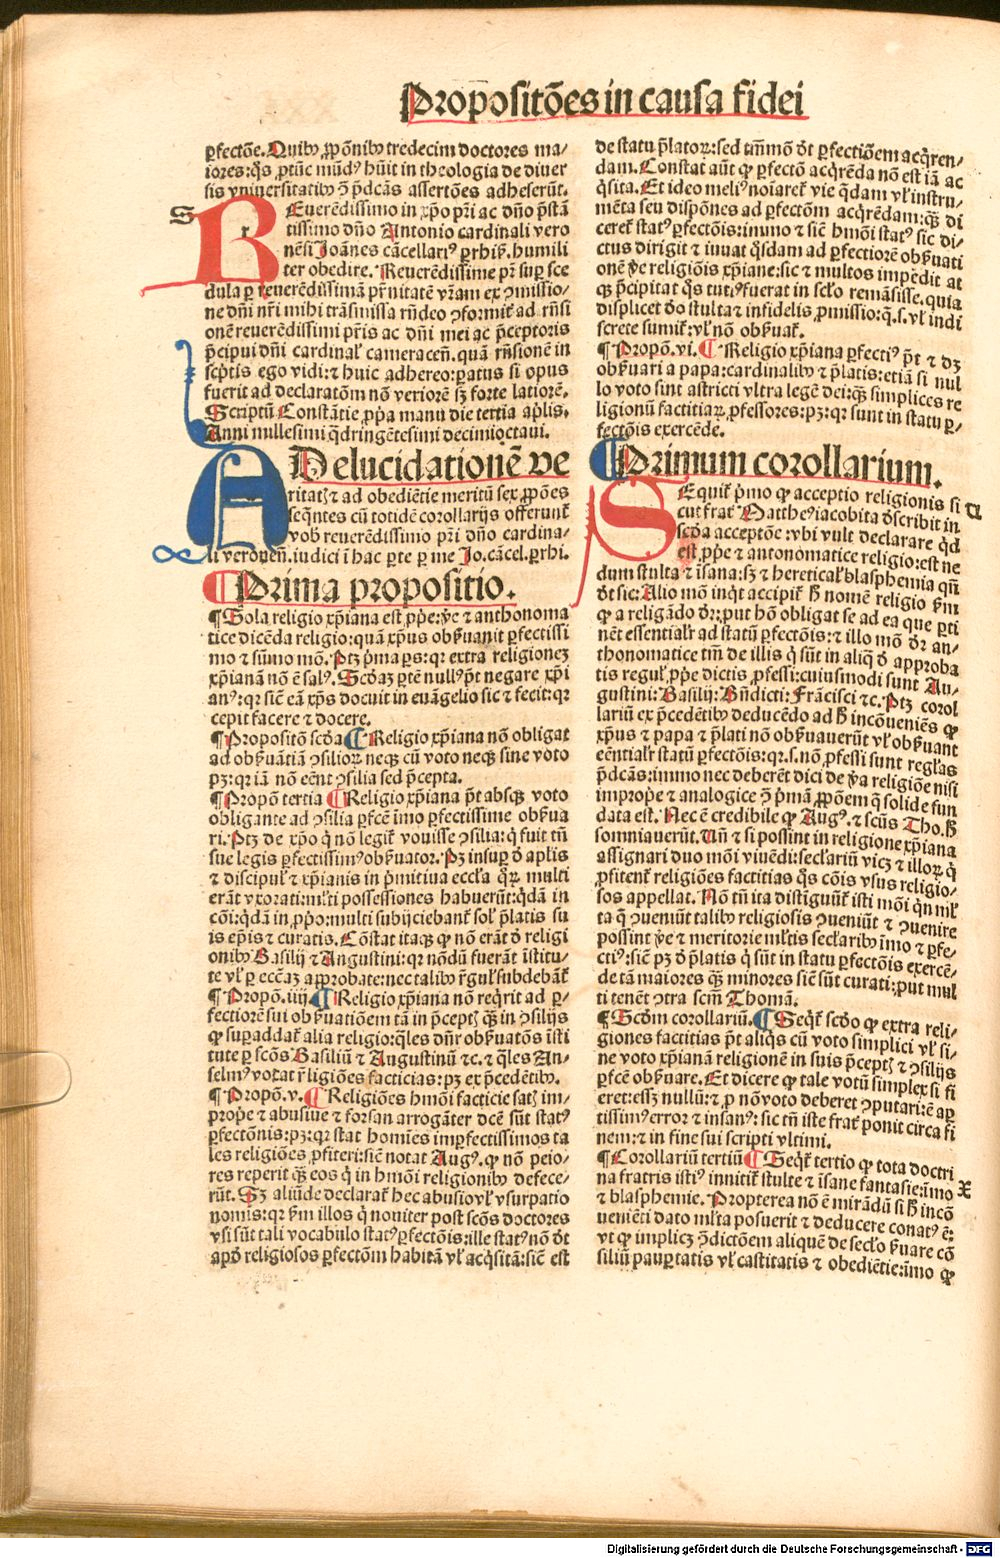 Propositões in causa fidei
ꝑfectõe. Quibꝰ ꝓpõnibꝰ tredecim doctores ma⸗
iores: q̃s ꝓtũc mũdꝰ hũit in theologia de diuer
sis vniuersitatibꝰ ꝯ p̃dcãs assertões adheserũt.
S
REuerẽdissimo in xp̃o pr̃i ac dño p̃stã
tissimo dño Antonio cardinali vero
nẽsi Joãnes cãcellariꝰ ꝑrhiſ. humili
ter obedire. Reuerẽdissime pr̃ suꝑ sce
dula ꝑ reuerẽdissimã pr̃nitatẽ vr̃am ex ꝯmissio⸗
ne dñi nr̃i mihi trãsmissa rñdeo ꝯformiť ad rñsi
onẽ reuerẽdissimi pr̃is ac dñi mei ac p̃ceptoris
p̃cipui dñi cardinaľ cameraceñ. quã rñsionẽ in
scp̃tis ego vidi: ⁊ huic adhereo: ꝑatus si opus
fuerit ad declaratõm nõ veriorẽ sꝫ forte latiorẽ.
Scriptũ Constãtie ꝓp̃a manu die tertia aplis.
Anni millesimi q̃dringẽtesimi decimioctaui.
AD elucidationẽ ve
ritatꝭ ⁊ ad obediẽtie meritũ sex ꝓpões
seq̃ntes cũ totidẽ corollarijs offerunť
vob̃ reuerẽdissimo pr̃i dño cardina⸗
li veroneñ. iudici ĩ hac ꝑte ꝑ me Jo. cãcel. ꝑrhi.
¶ Prima propositio.
¶ Sola religio xp̃iana est ꝓp̃e: ṽe ⁊ anthonoma
tice dicẽda religio: quã xp̃us obẜuauit ꝑfectissi
mo ⁊ sũmo mõ. Ptꝫ p̃ma ꝑs: qꝛ extra religionez
xp̃ianã nõ ẽ salꝰ. Scd̃aꝫ ꝑtẽ nullꝰ p̃t negare xp̃i
anꝰ: qꝛ sic̃ eã xp̃s docuit in euãgelio sic ⁊ fecit: qꝛ
cepit facere ⁊ docere.
¶ Propositõ scd̃a ¶ Religio xp̃iana nõ obligat
ad obẜuãtiã ꝯsilioꝝ neqꝫ cũ voto neqꝫ sine voto
pꝫ: qꝛ iã nõ eẽnt ꝯsilia sed p̃cepta.
¶ Propõ tertia ¶ Religio xp̃iana p̃t absqꝫ voto
obligante ad ꝯsilia ꝑfcẽ ĩmo ꝑfectissime obẜua
ri. Ptꝫ de xp̃o q̃ nõ legiť vouisse ꝯsilia: q̃ fuit tñ
sue legis ꝑfectissimꝰ obẜuator. Pꝫ insuꝑ ð aplis
⁊ discipuľ ⁊ xp̃ianis in p̃mitiua eccľa q̃ꝝ multi
erãt vxorati: mľti possessiones habuerũt: q̃dã in
cõi: q̃dã in ꝓp̃o: multi subijciebanť soľ p̃latis su
is ep̃is ⁊ curatis. Cõstat itaqꝫ ꝙ nõ erãt ð religi
onibꝰ Basilij ⁊ Augustini: qꝛ nõdũ fuerãt ĩstitu⸗
te vľ ꝑ ecc̃aꝫ approbate: nec talibꝰ r̃guľ subdebãť
¶ Propõ. iiij. ¶ Religio xp̃iana nõ req̃rit ad ꝑ⸗
fectiorẽ sui obẜuatiõem tã in p̃ceptꝭ q̃ꝫ in ꝯsilijs
ꝙ suꝑaddať alia religio: q̃les dñr obẜuatõs ĩsti
tute ꝑ scõs Basiliũ ⁊ Augustinũ ⁊c. ⁊ q̃les An⸗
selmꝰ vocat r̃ligiões facticias: pꝫ ex p̃cedẽtibꝰ.
¶ Propõ. v. ¶ Religiões hmõi facticie satꝭ im⸗
ꝓp̃e ⁊ abusiue ⁊ forsan arrogãter dcẽ sũt statꝰ
ꝑfectõnis: pꝫ: qꝛ stat homies imꝑfectissimos ta
les religiões ꝓfiteri: sic̃ notat Augꝰ. ꝙ nõ peio⸗
res reperit q̃ꝫ eos q̃ in hmõi religionibꝰ defece⸗
rũt. Sꝫ aliũde declarať hec abusio vľ vsurpatio
nomis: qꝛ ẜm illos q̃ nouiter post scõs doctores
vsi sũt tali vocabulo statꝰ ꝑfectõis: ille statꝰ nõ ðt
apð religiosos ꝑfectõm habitã vľ acq̃sitã: sic̃ est
de statu p̃latoꝝ: sed tm̃mõ ðt ꝑfectiõem acq̃ren⸗
dam. Constat aũt ꝙ ꝑfectõ acq̃rẽda nõ est iã ac
q̃sita. Et ideo meliꝰ noĩareť vie q̃dam vľ instru⸗
mẽta seu dispões ad ꝑfectõm acq̃rẽdam: q̃ꝫ di
cereť statꝰ ꝑfectõis: immo ⁊ sic̃ hmõi statꝰ sic di⸗
ctus dirigit ⁊ iuuat q̃sdam ad ꝑfectiorẽ obẜuati
onẽ ṽe religiõis xp̃iane: sic ⁊ multos impedit at
qꝫ p̃cipitat q̃s tutiꝰ fuerat in scľo remãsisse. quia
displicet ðo stulta ⁊ infidelis ꝓmissio: q̃. s. vľ indi
screte sumiť: vľ nõ obẜuať.
¶ Propõ. vi. ¶ Religio xp̃iana ꝑfectiꝰ p̃t ⁊ dꝫ
obẜuari a papa: cardinalibꝰ ⁊ p̃latis: etiã si nul
lo voto sint astricti vltra legẽ dei: q̃ꝫ simplices re
ligionũ factitiaꝝ ꝓfessores: pꝫ: qꝛ sunt in statu ꝑ⸗
fectõis exercẽde.
¶ Primum corollarium.
SEquiť p̃mo ꝙ acceptio religionis si
cut frať Mattheꝰ iacobita ðscribit in
scd̃a acceptõe: vbi vult declarare q̃d
est ꝓp̃e ⁊ antonomatice religio: est ne
dum stulta ⁊ ĩsana: sꝫ ⁊ hereticaľ blasphemia qñ
ðt sic: Alio mõ inq̃t accipiť ħ nomẽ religio ẜm
ꝙ a religãdo ðr: put hõ obligat se ad ea que ꝑti
nẽt essentialr̃ ad statũ ꝑfectõis: ⁊ illo mõ ðr an⸗
thonomatice tm̃ de illis q̃ sũt in aliq̃ ð approba
tis reguľ ꝓp̃e dictis ꝓfessi: cuiusmodi sunt Au⸗
gustini: Basilij: Bñdicti: Frãcisci ⁊c. Ptꝫ corol
lariũ ex p̃cedẽtibꝰ deducẽdo ad ħ incõueniẽs ꝙ
xp̃us ⁊ papa ⁊ p̃lati nõ obẜuauerũt vľ obẜuant
eẽntialr̃ statũ ꝑfectõis: qꝛ. s. nõ ꝓfessi sunt regl̃as
p̃dcãs: immo nec deberẽt dici de ṽa religiõe nisi
improp̃e ⁊ analogice ꝯ p̃mã ꝓpõem q̃ solide fun
data est. Nec ẽ credibile ꝙ Augꝰ. ⁊ scũs Tho. ħ
somniauerũt. Vñ ⁊ si possint in religione xp̃iana
assignari duo mõi viuẽdi: secľariũ vicꝫ ⁊ illoꝝ q̃
ꝓfitenť religiões factitias q̃s cõis vsus religio⸗
sos appellat. Nõ tñ ita distĩguũť isti mõi q̃n mľ
ta q̃ ꝯueniũt talibꝰ religiosis ꝯueniũt ⁊ ꝯuenire
possint ṽe ⁊ meritorie mľtis secľaribꝰ ĩmo ⁊ ꝑfe⸗
ctiꝰ: sic̃ pꝫ ð p̃latis q̃ sũt in statu ꝑfectõis exercẽ⸗
de tã maiores q̃ꝫ minores sic̃ sũt curati: put mul
ti tenẽt ꝯtra scm̃ Thomã.
¶ Scd̃m corollariũ. ¶ Seq̃ť scd̃o ꝙ extra reli⸗
giones factitias p̃t aliq̃s cũ voto simplici vľ si⸗
ne voto xp̃ianã religionẽ in suis p̃ceptꝭ ⁊ ꝯsilijs
ꝑfcẽ obẜuare. Et dicere ꝙ tale votũ simplex si fi
eret: esscꝫ nullũ: ⁊ ꝓ nõ voto deberet ꝯputari: ẽ aꝑ
tissimꝰ error ⁊ insanꝰ: sic tñ iste frať ponit circa fi
nem: ⁊ in fine sui scripti vltimi.
¶ Corollariũ tertiũ ¶ Seq̃ť tertio ꝙ tota doctri
na fratris istiꝰ innitiť stulte ⁊ ĩsane fantasie: ĩmo
⁊ blasphemie. Propterea nõ ẽ mirãdũ si ħ incõ
ueniẽti dato mľta posuerit ⁊ deducere conatꝰ ẽ:
vt ꝙ implicꝫ ꝯdictõem aliquẽ de secľo ẜuare cõ
siliũ pauꝑtatis vľ castitatis ⁊ obediẽtie: ĩmo ꝙ
Digitalisierung gefördert durch die Deutsche Forschungsgemeinschaft - DFG